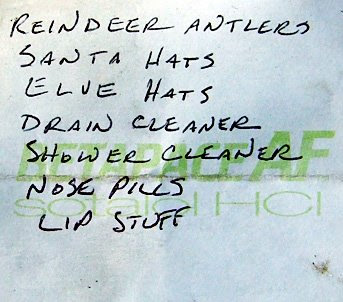 REINDEER ANTLERS
SANTA HATS
ELVE HATS
DRAIN CLEANER
SHOWER CLEANER
BETAPACE AF
NOSE PILLS
sotalol HCl
LIP STUFF